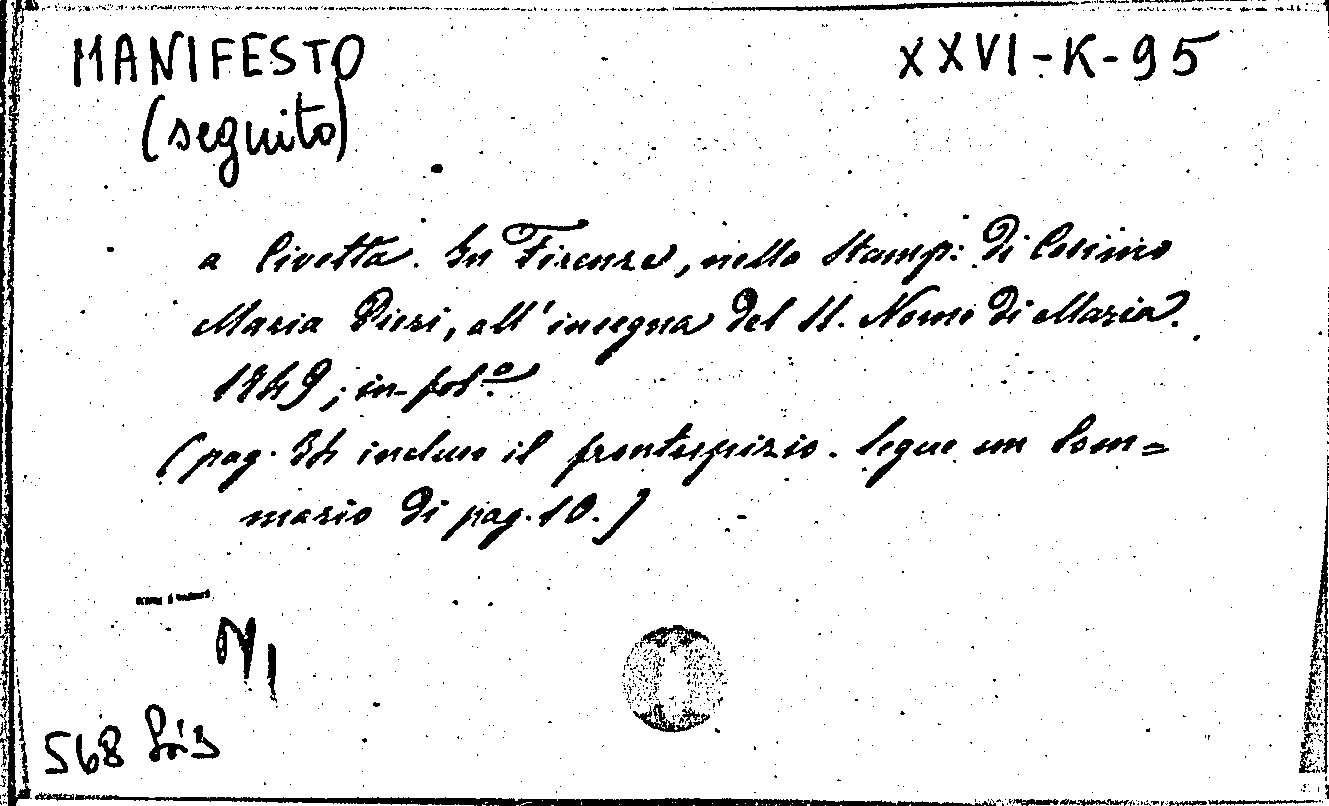 MANIFESTO
XXVI-K-95
(seguito)
a Civetta. In Firenze, nella Stamp: di Cosimo
Maria Pieri, all'insegna del SS. Nome di Maria.
1749; in-folº.
(pag. 34 incluso il frontespizio. Segue un Som=
mario di pag. 10.)
568